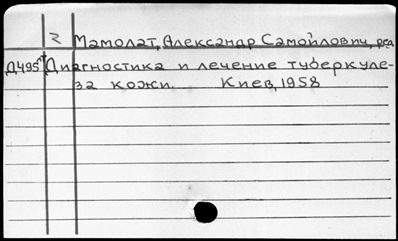 2 Мамолат, Александр Самойлович, ред
Д495 Диагностика и лечение туберкуле-
за кожи. Киев, 1958